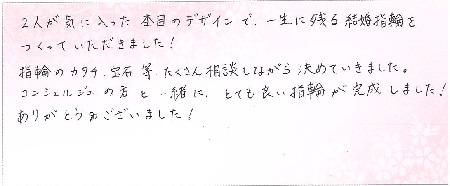 2人が気に入った木目のデザインで、一生に残る結婚指輪を
つくっていただきました！
指輪のカタチ、宝石等、たくさん相談しながら決めていきました。
コンシェルジュの方と一緒に、とても良い指輪が完成しました！
ありがとうございました！